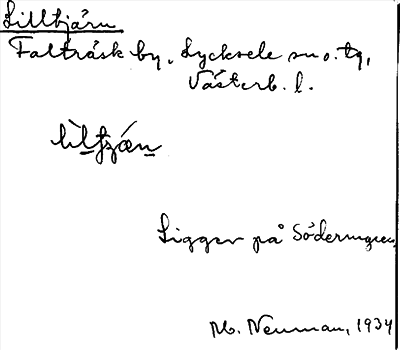 Lilltjärn
Falträsk by, Lycksele sn o. tg,
Västerb. l.
Ligger på Södermyren,
M. Neuman, 1934